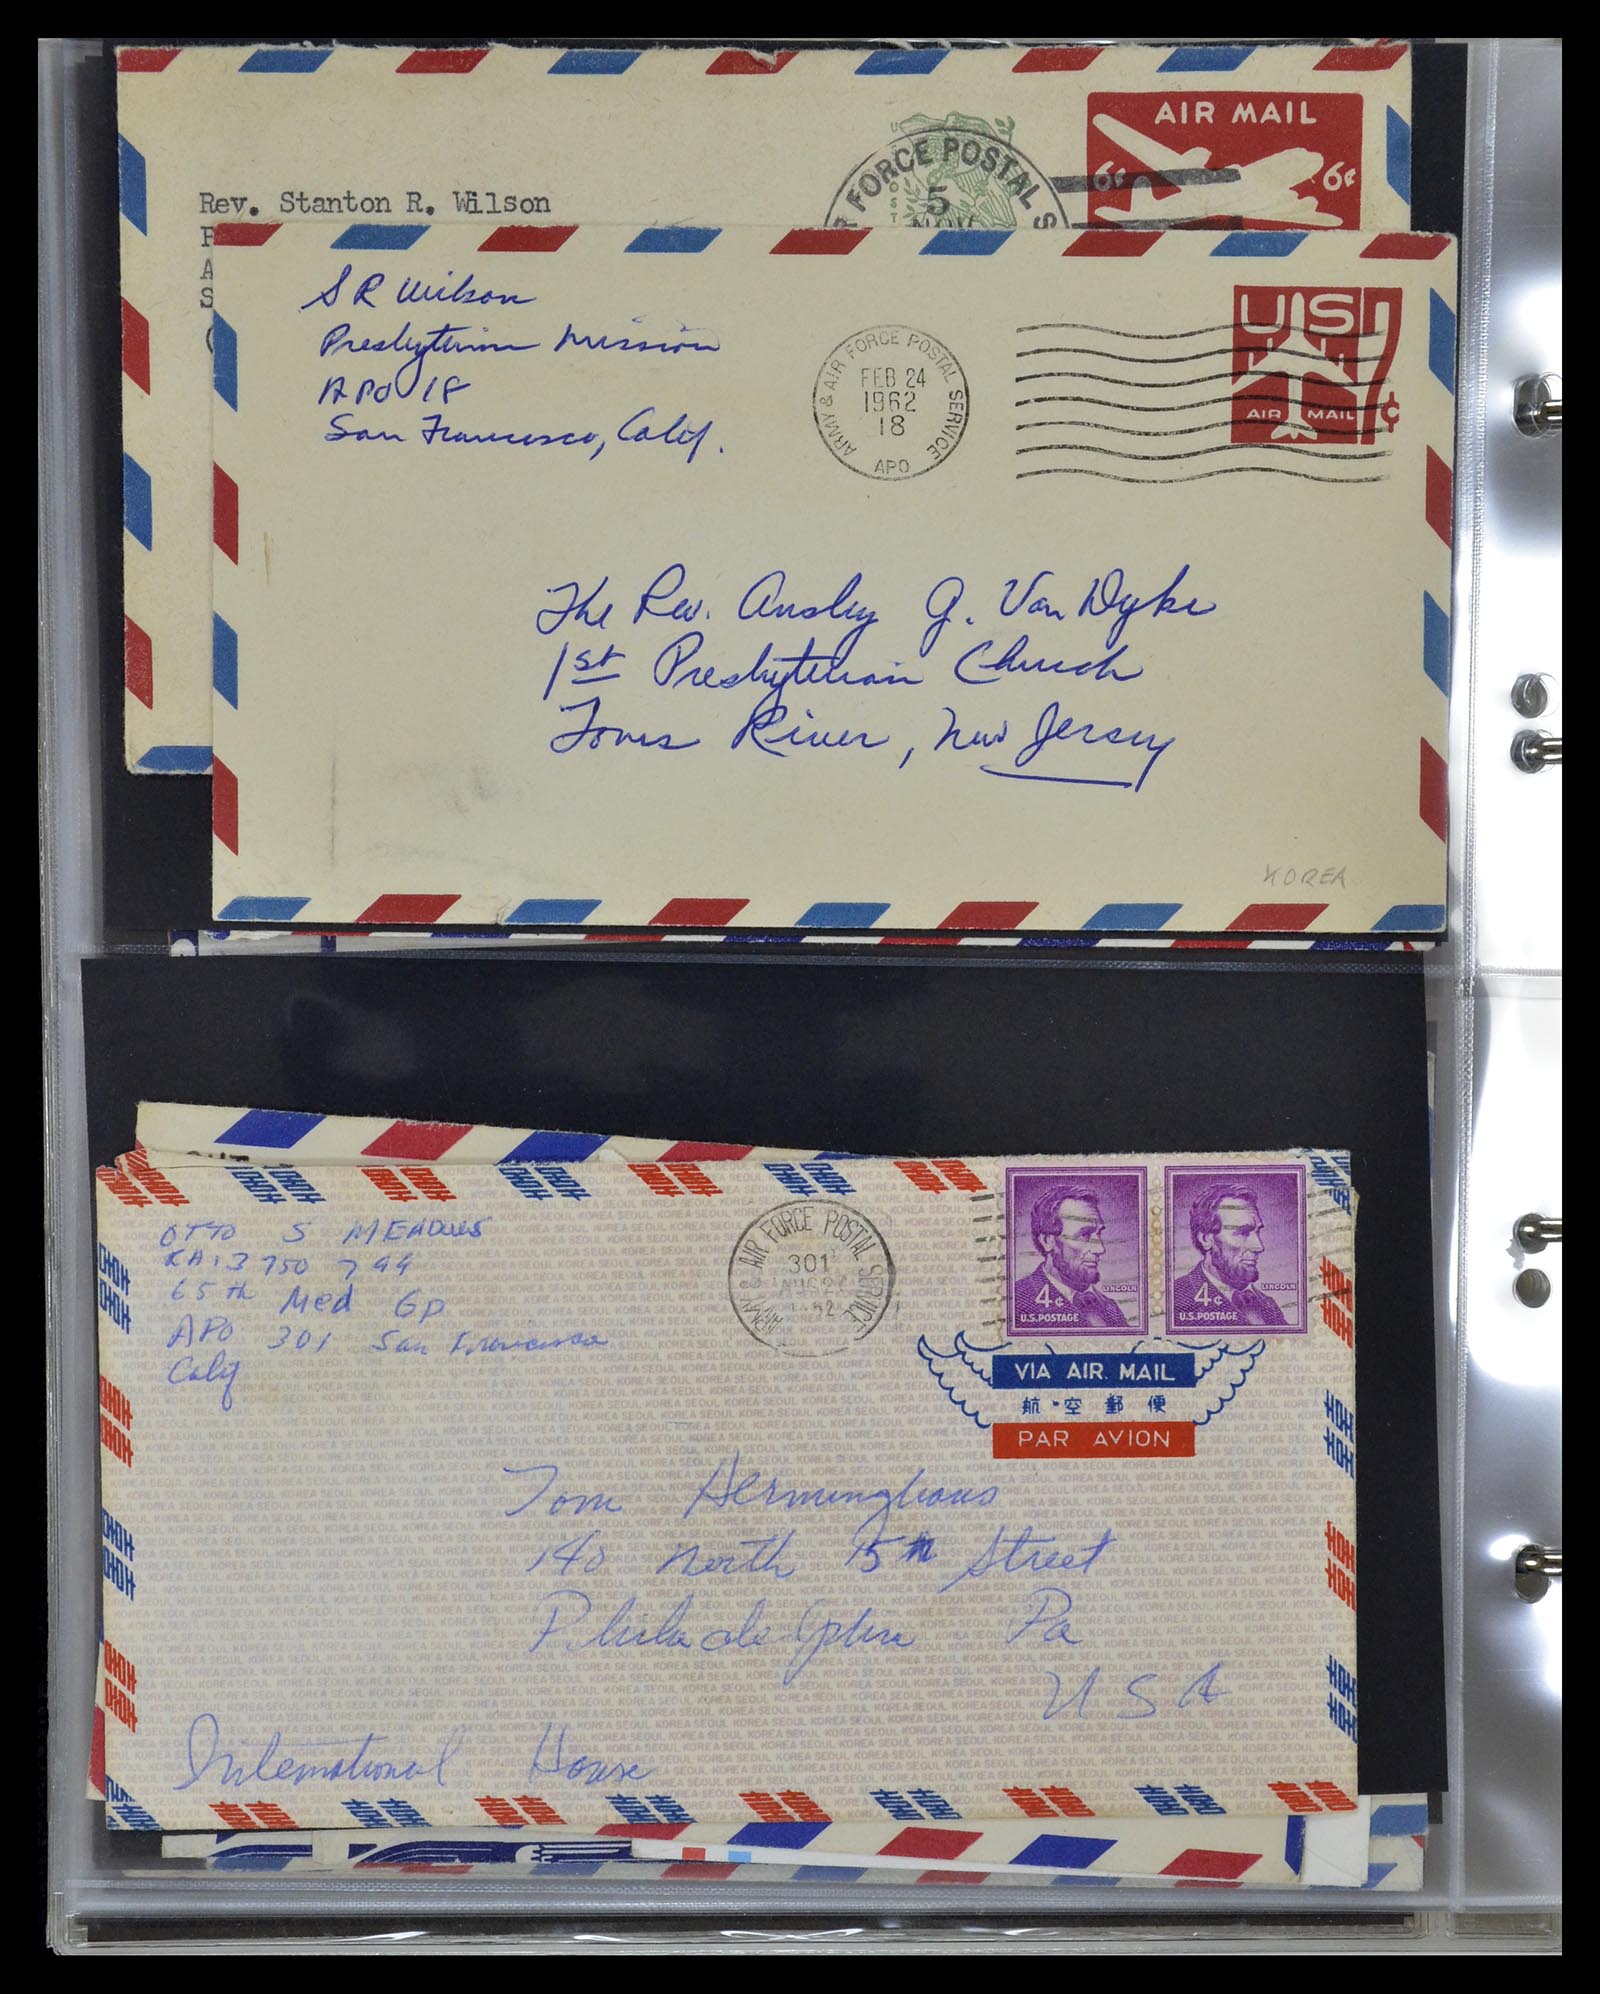 AIR MAIL
6¢ 6¢
FORCE POSTAL S
5
Rev. Stanton R. Wilson
S R Wilson
Presbyterian Mission
APO 18
San Francisco, Calif.
ARMY & AIR FORCE POSTAL SERVICE
FEB 24
1962
18
APO
US
AIR MAIL
7¢
The Rev. Ansley G. Van Dyke
1st Presbyterian Church
Toms River, New Jersey
KOREA
OTTO S MEADOWS
RA 13 750 799
65th Med Gp
APO 301 San Francisco
Calif
ARMY & AIR FORCE POSTAL SERVICE
301
LINCOLN LINCOLN
4¢ 4¢
U.S. POSTAGE U.S. POSTAGE
VIA AIR. MAIL
航空郵便
PAR AVION
Tom Herminghaus
140 North 15th Street
Philadelphia Pa
USA
International House
KOREA SEOUL